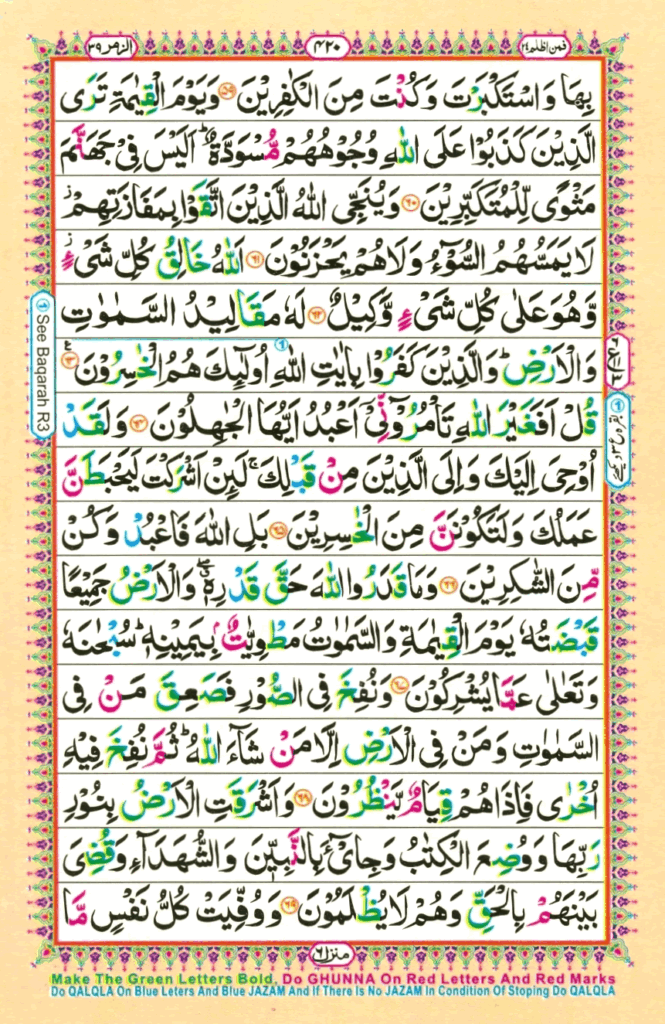 الزمر ٣٩
٤٢٠
فمن اظلم ٢٤
بِهَا وَاسْتَكْبَرْتَ وَكُنْتَ مِنَ الْكٰفِرِيْنَ ﴿٥٩﴾ وَيَوْمَ الْقِيٰمَةِ تَرَى
الَّذِيْنَ كَذَبُوْا عَلَى اللّٰهِ وُجُوْهُهُمْ مُّسْوَدَّةٌ ؕ اَلَيْسَ فِىْ جَهَنَّمَ
مَثْوًى لِّلْمُتَكَبِّرِيْنَ ﴿٦٠﴾ وَيُنَجِّى اللّٰهُ الَّذِيْنَ اتَّقَوْا بِمَفَازَتِهِمْ ز
لَا يَمَسُّهُمُ السُّوْٓءُ وَلَا هُمْ يَحْزَنُوْنَ ﴿٦١﴾ اَللّٰهُ خَالِقُ كُلِّ شَىْءٍ ز
وَّهُوَ عَلٰى كُلِّ شَىْءٍ وَّكِيْلٌ ﴿٦٢﴾ لَهٗ مَقَالِيْدُ السَّمٰوٰتِ
وَالْاَرْضِ ؕ وَالَّذِيْنَ كَفَرُوْا بِاٰيٰتِ اللّٰهِ اُولٰٓئِكَ هُمُ الْخٰسِرُوْنَ ﴿٦٣﴾ ع
قُلْ اَفَغَيْرَ اللّٰهِ تَاْمُرُوْٓنِّىْٓ اَعْبُدُ اَيُّهَا الْجٰهِلُوْنَ ﴿٦٤﴾ وَلَقَدْ
اُوْحِىَ اِلَيْكَ وَاِلَى الَّذِيْنَ مِنْ قَبْلِكَ ۚ لَئِنْ اَشْرَكْتَ لَيَحْبَطَنَّ
عَمَلُكَ وَلَتَكُوْنَنَّ مِنَ الْخٰسِرِيْنَ ﴿٦٥﴾ بَلِ اللّٰهَ فَاعْبُدْ وَكُنْ
مِّنَ الشّٰكِرِيْنَ ﴿٦٦﴾ وَمَا قَدَرُوا اللّٰهَ حَقَّ قَدْرِهٖ ۖ وَالْاَرْضُ جَمِيْعًا
قَبْضَتُهٗ يَوْمَ الْقِيٰمَةِ وَالسَّمٰوٰتُ مَطْوِيّٰتٌۢ بِيَمِيْنِهٖ ؕ سُبْحٰنَهٗ
وَتَعٰلٰى عَمَّا يُشْرِكُوْنَ ﴿٦٧﴾ وَنُفِخَ فِى الصُّوْرِ فَصَعِقَ مَنْ فِى
السَّمٰوٰتِ وَمَنْ فِى الْاَرْضِ اِلَّا مَنْ شَآءَ اللّٰهُ ؕ ثُمَّ نُفِخَ فِيْهِ
اُخْرٰى فَاِذَا هُمْ قِيَامٌ يَّنْظُرُوْنَ ﴿٦٨﴾ وَاَشْرَقَتِ الْاَرْضُ بِنُوْرِ
رَبِّهَا وَوُضِعَ الْكِتٰبُ وَجِاىْٓءَ بِالنَّبِيّٖنَ وَالشُّهَدَآءِ وَقُضِىَ
بَيْنَهُمْ بِالْحَقِّ وَهُمْ لَا يُظْلَمُوْنَ ﴿٦٩﴾ وَوُفِّيَتْ كُلُّ نَفْسٍ مَّا
① See Baqarah R3
منزل ٦
Make The Green Letters Bold, Do GHUNNA On Red Letters And Red Marks
Do QALQLA On Blue Leters And Blue JAZAM And If There Is No JAZAM In Condition Of Stoping Do QALQLA